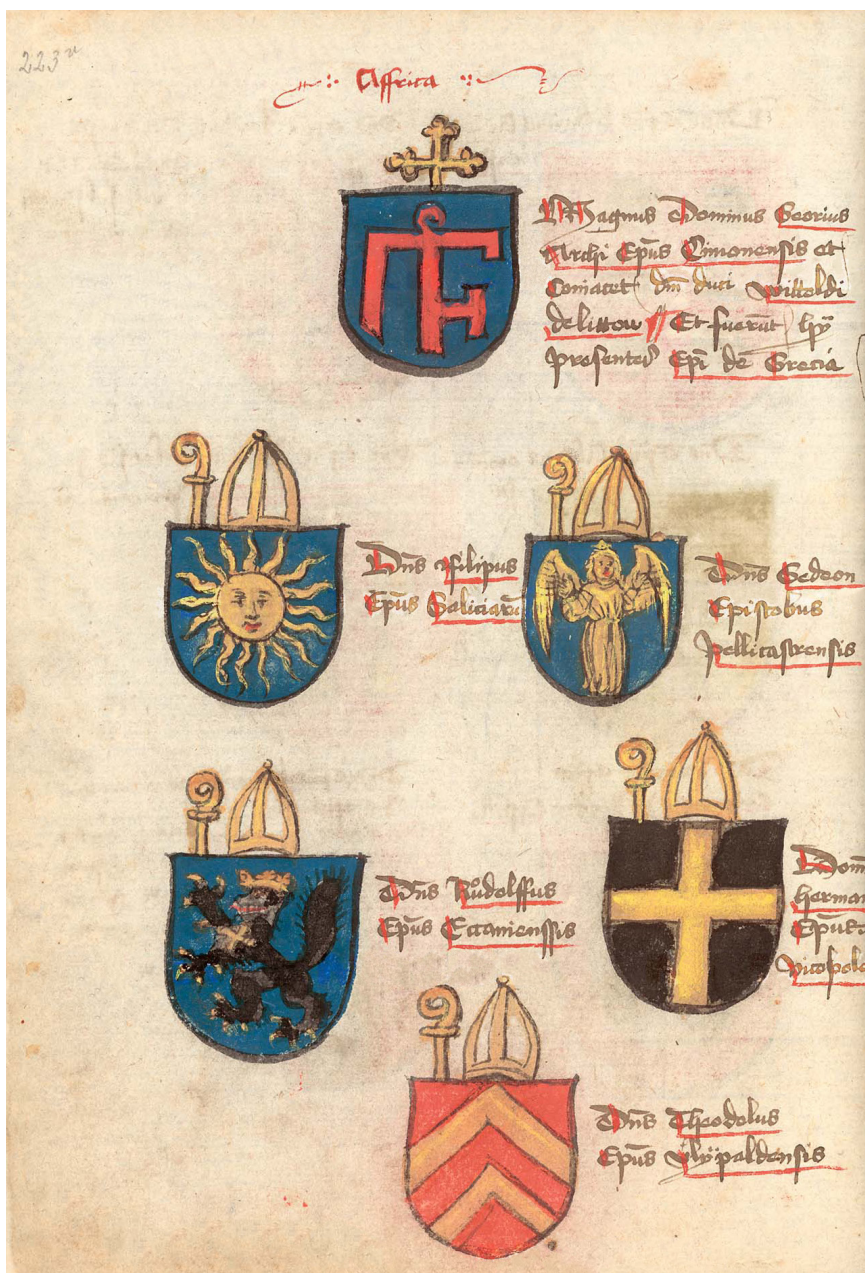 223v
Affrica
Magnus Dominus Georius
Archi Epūs Cimonensis et
Comacet dm̄ duci wittoldi
de littow Et fuerūt hÿ
presentes Epī de Grecia
Dn̄s Filipus
Epūs Galiciarū
Dn̄s Gedeon
Epistobus
pellicastrensis
Dn̄s Růdolffus
Epūs Eccaniensſis
Dom
herman
Epūs
vicopol
Dn̄s Theodolus
Epūs ypaldensis